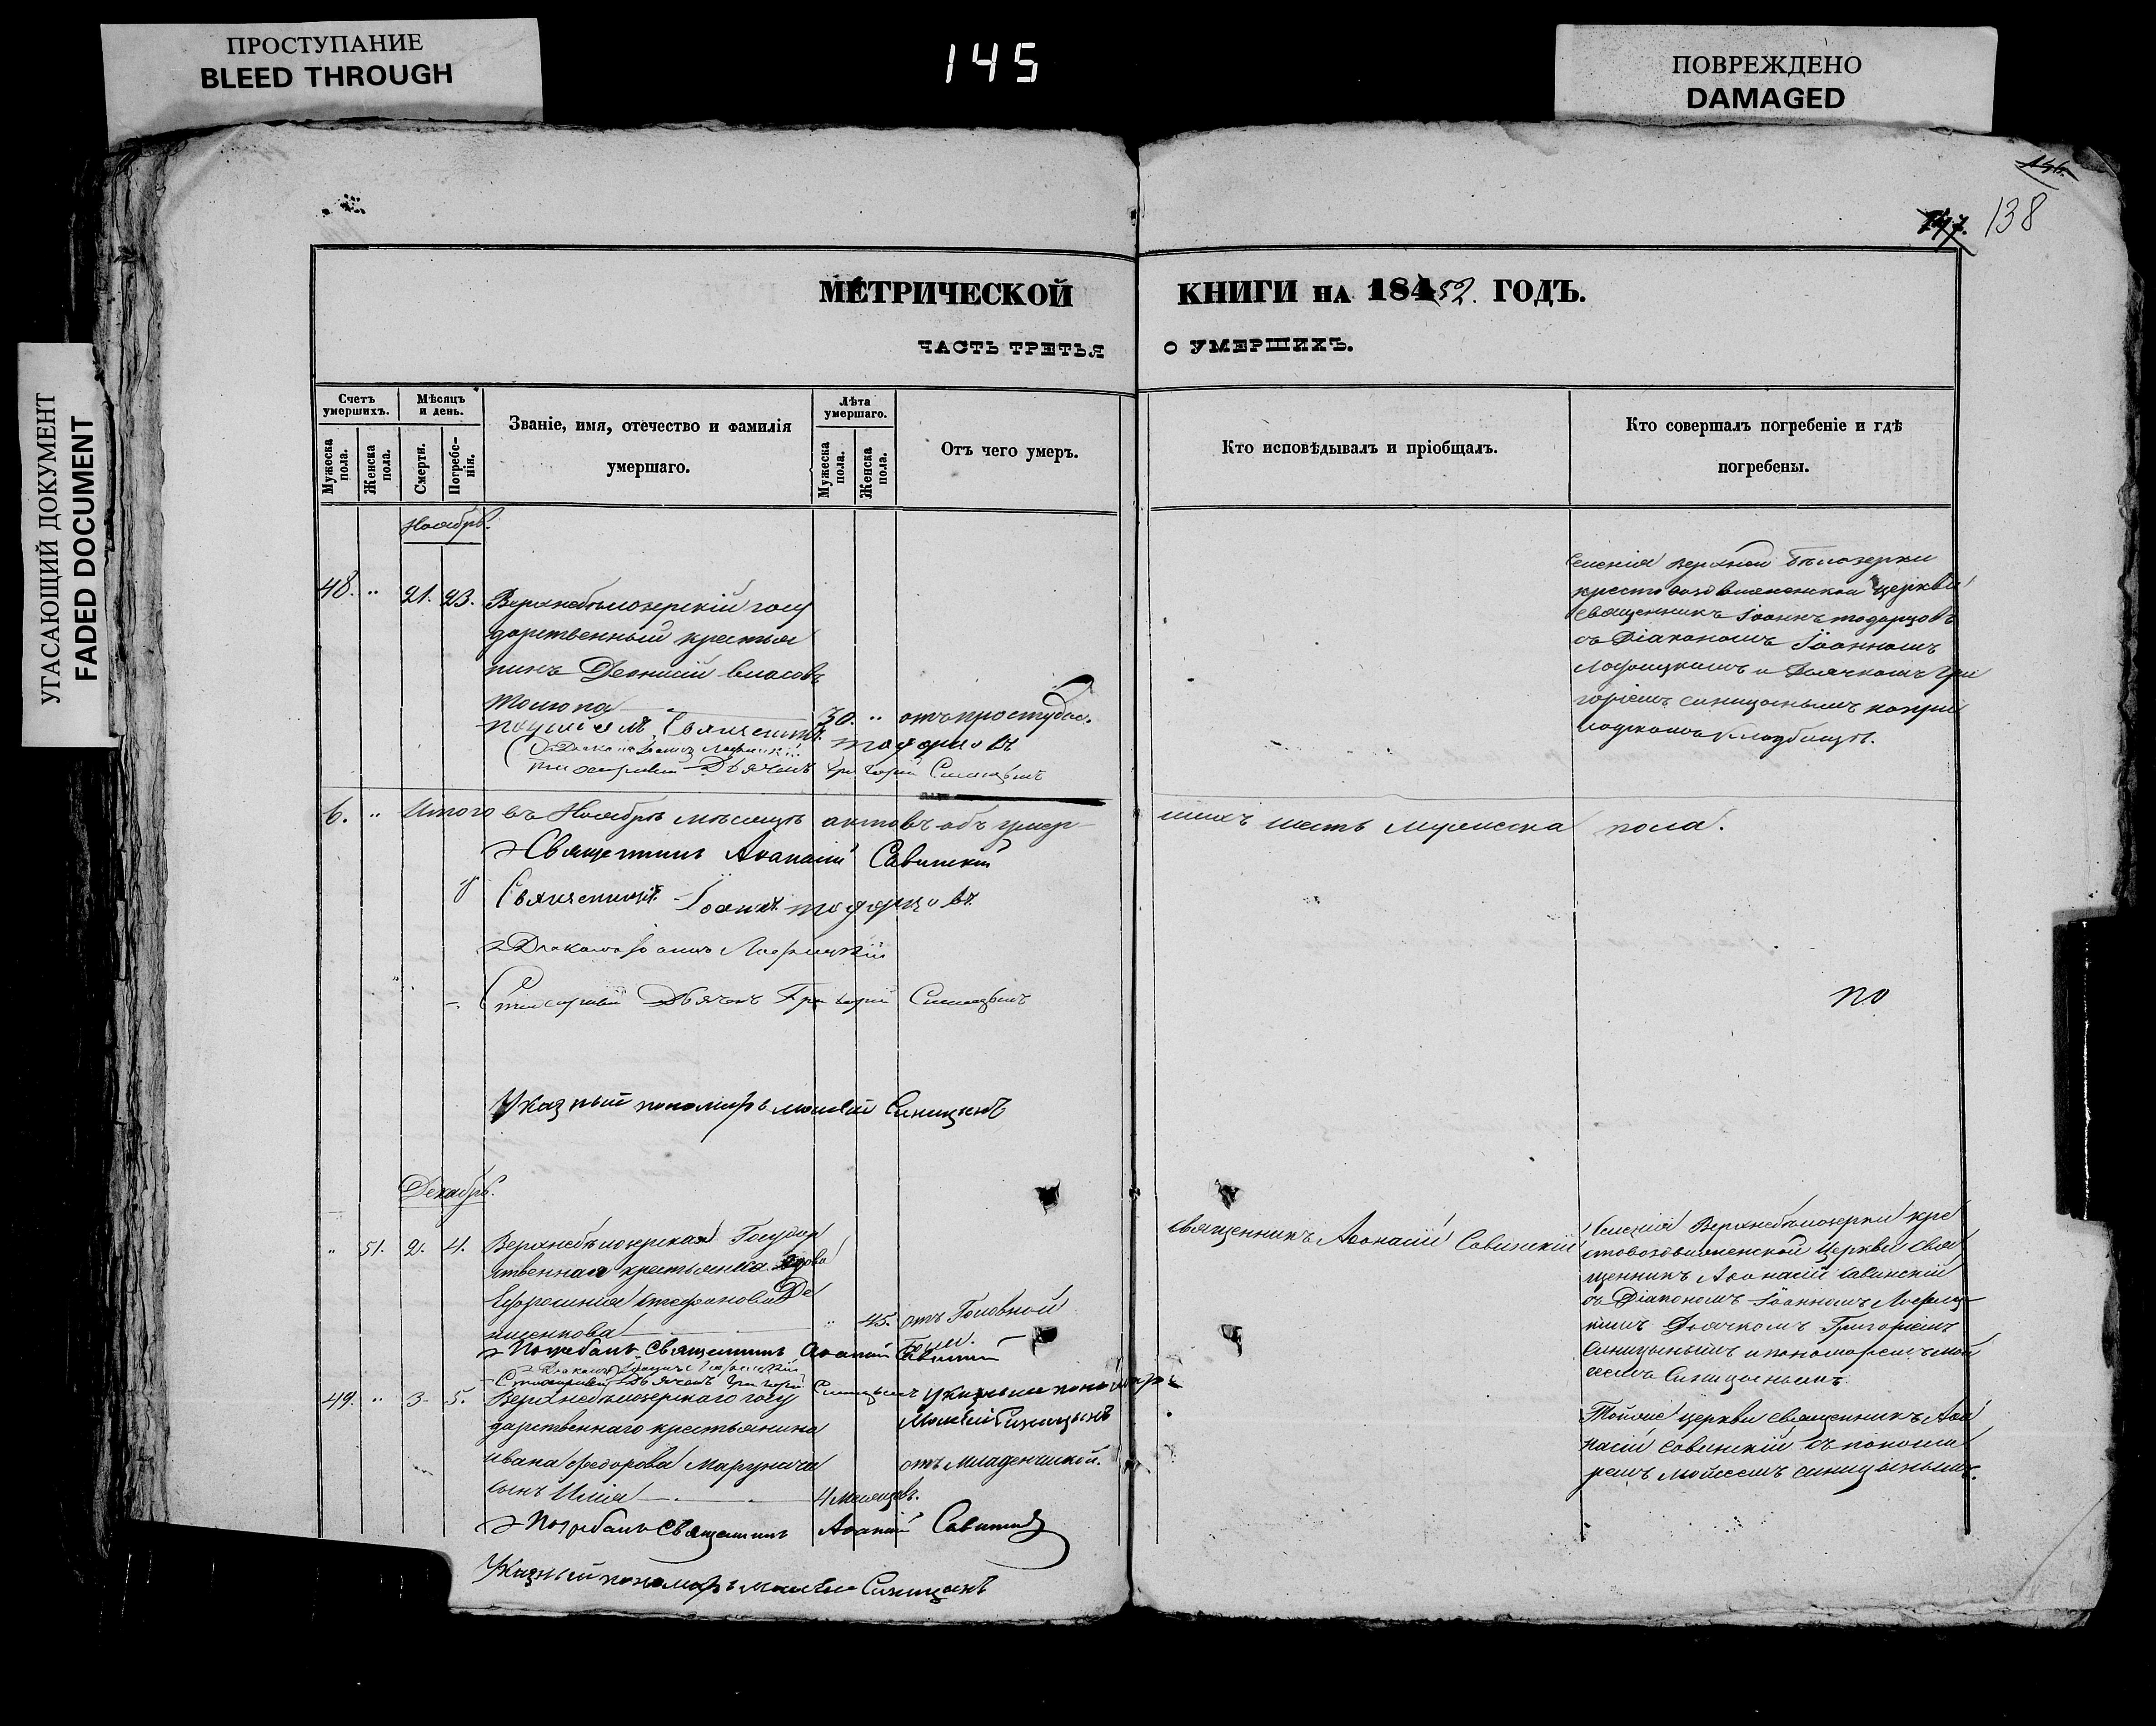 ПРОСТУПАНИЕ
BLEED THROUGH
145
ПОВРЕЖДЕНО
DAMAGED
УГАСАЮЩИЙ ДОКУМЕНТ
FADED DOCUMENT
146.
147.
138
МЕТРИЧЕСКОЙ КНИГИ НА 18452. ГОДЪ.
ЧАСТЬ ТРЕТЬЯ О УМЕРШИХЪ.
Счетъ умершихъ.
Мужеска пола.
Женска пола.
Мѣсяцъ и день.
Смерти.
Погребенія.
Званіе, имя, отечество и фамилія
умершаго.
Лѣта умершаго.
Мужеска пола.
Женска пола.
Отъ чего умеръ.
Кто исповѣдывалъ и пріобщалъ.
Кто совершалъ погребеніе и гдѣ
погребены.
Ноябрь.
48. " 21. 23. Верхнебѣлозерскій госу
дарственный крестья
нинъ Деонисій Власовъ
30. " отъ простуды.
Священникъ Тодорцовъ
Діаконъ Іоаннъ
Дьячекъ Григорій Синицынъ
селенія Верхней Бѣлозерки
крестовоздвиженской церкви
священникъ Іоаннъ Тодорцовъ
съ Діакономъ Іоанномъ
и Дьячкомъ Гри
горіемъ Синицынымъ на при
ходскомъ кладбищѣ.
6. " Итого въ Ноябрѣ мѣсяцѣ актовъ объ умер
шихъ шесть мужеска пола.
Священникъ Аѳанасій Савинскій
Священникъ Іоаннъ Тодорцовъ
Діаконъ Іоаннъ
Дьячекъ Григорій Синицынъ
по
Указный пономарь Моисей Синицынъ
Декабрь.
" 51. 2. 4. Верхнебѣлозерская Государ
ственная крестьянка вдова
Ефросинія Стефанова Де
" 45. отъ Головной
боли.
Погребалъ Священникъ Аѳанасій Савинскій
Діаконъ Іоаннъ
Дьячекъ Григорій Синицынъ Указный пономарь
Моисей Синицынъ
Священникъ Аѳонасій Савинскій
селенія Верхнебѣлозерки кре
стовоздвиженской церкви свя
щенникъ Аѳонасій Савинскій
съ Діакономъ Іоанномъ
Дьячкомъ Григоріемъ
Синицынымъ и пономаремъ Мой
сеемъ Синицынымъ.
49. " 3. 5. Верхнебѣлозерскаго госу
дарственнаго крестьянина
Ивана Федорова Марунича
сынъ Илія
4 месяцовъ.
отъ младенческой.
Тойже церкви священникъ Аѳа
насій Савинскій съ понома
ремъ Мойсеемъ Синицынымъ.
Погребалъ Священникъ Аѳанасій Савинскій
Указный пономарь Моисей Синицынъ